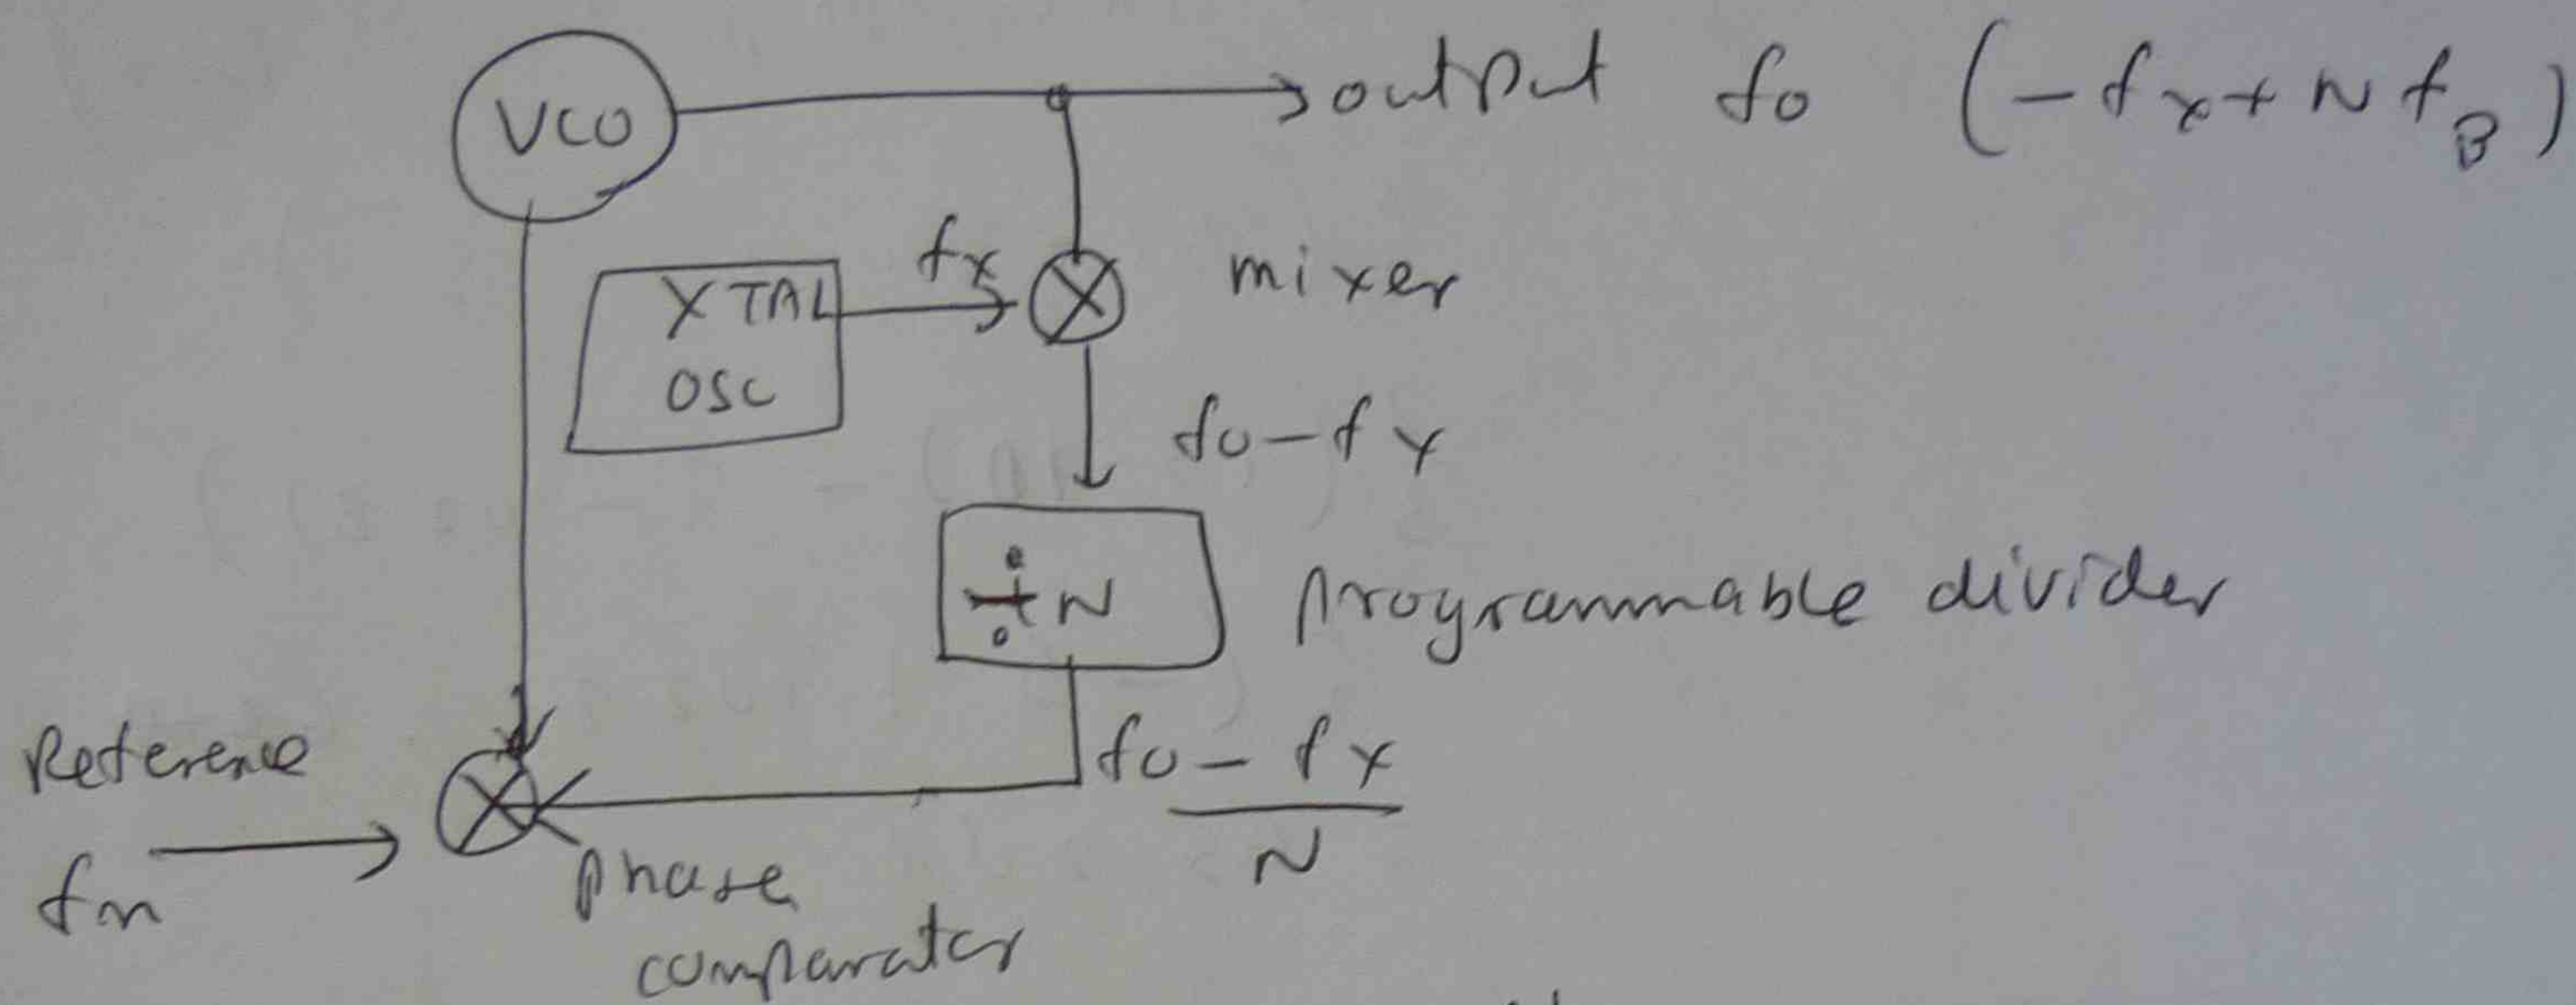 VCO
output fo (-fx+NfB)
XTAL
OSC
fx
mixer
fo-fx
÷N
programmable divider
fo-fx
N
Reference
fn
phase
comparator